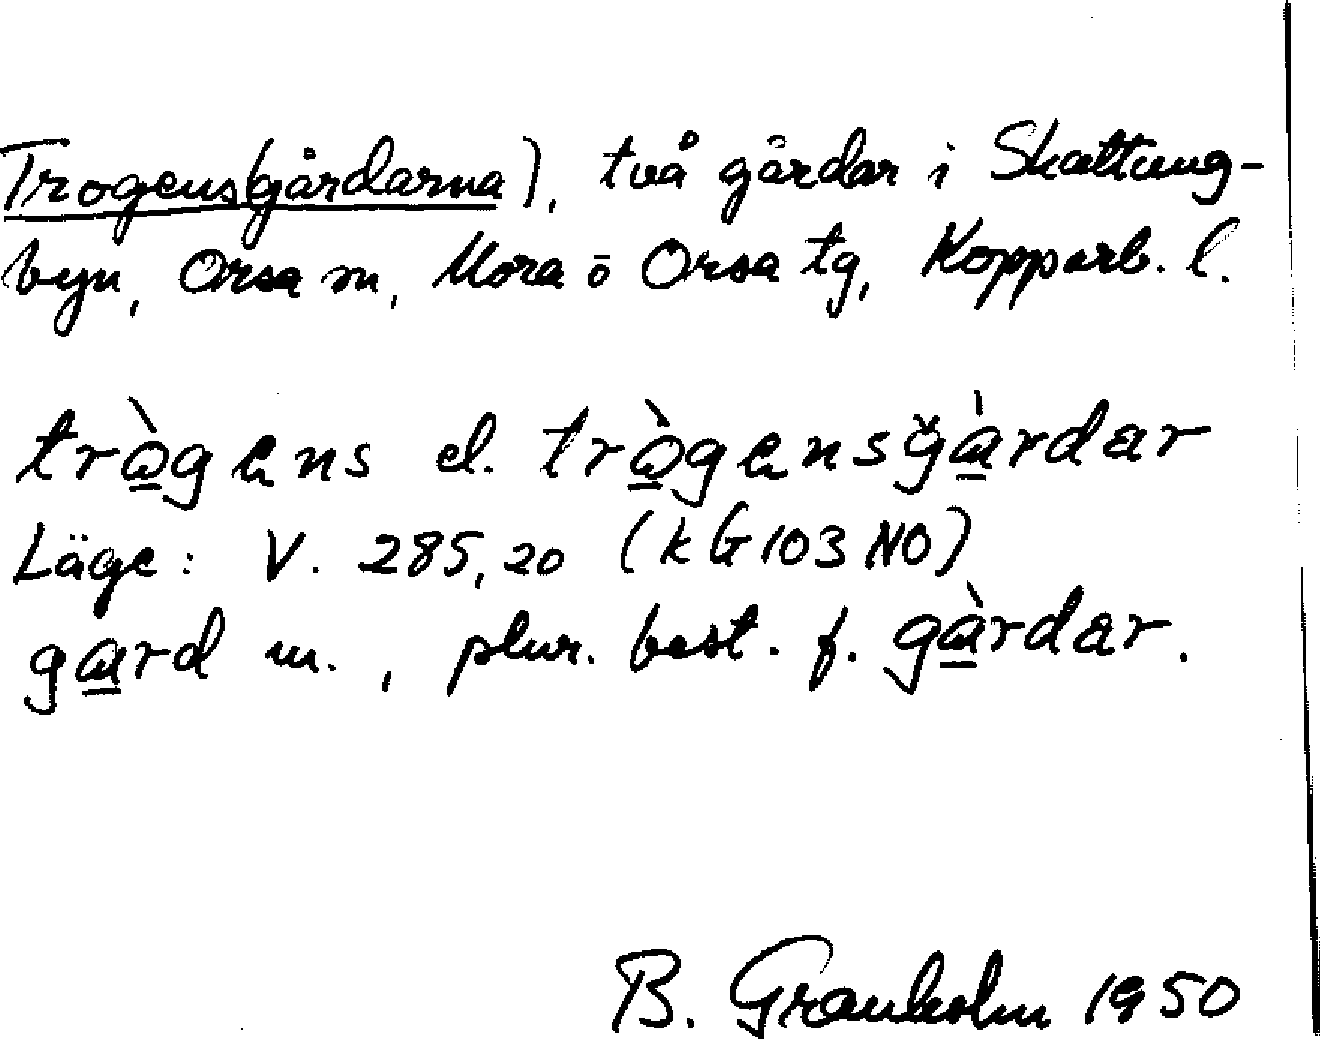 Trogens(gårdarna), två gårdar i Skattung-
byn, Orsa sn, Mora o Orsa tg, Kopparb. l.
tràgens el. trògensgàrdar
Läge: V. 285,20 (kG103 NO)
gard m., plur. best. f. gàrdar.
B. Granholm 1950